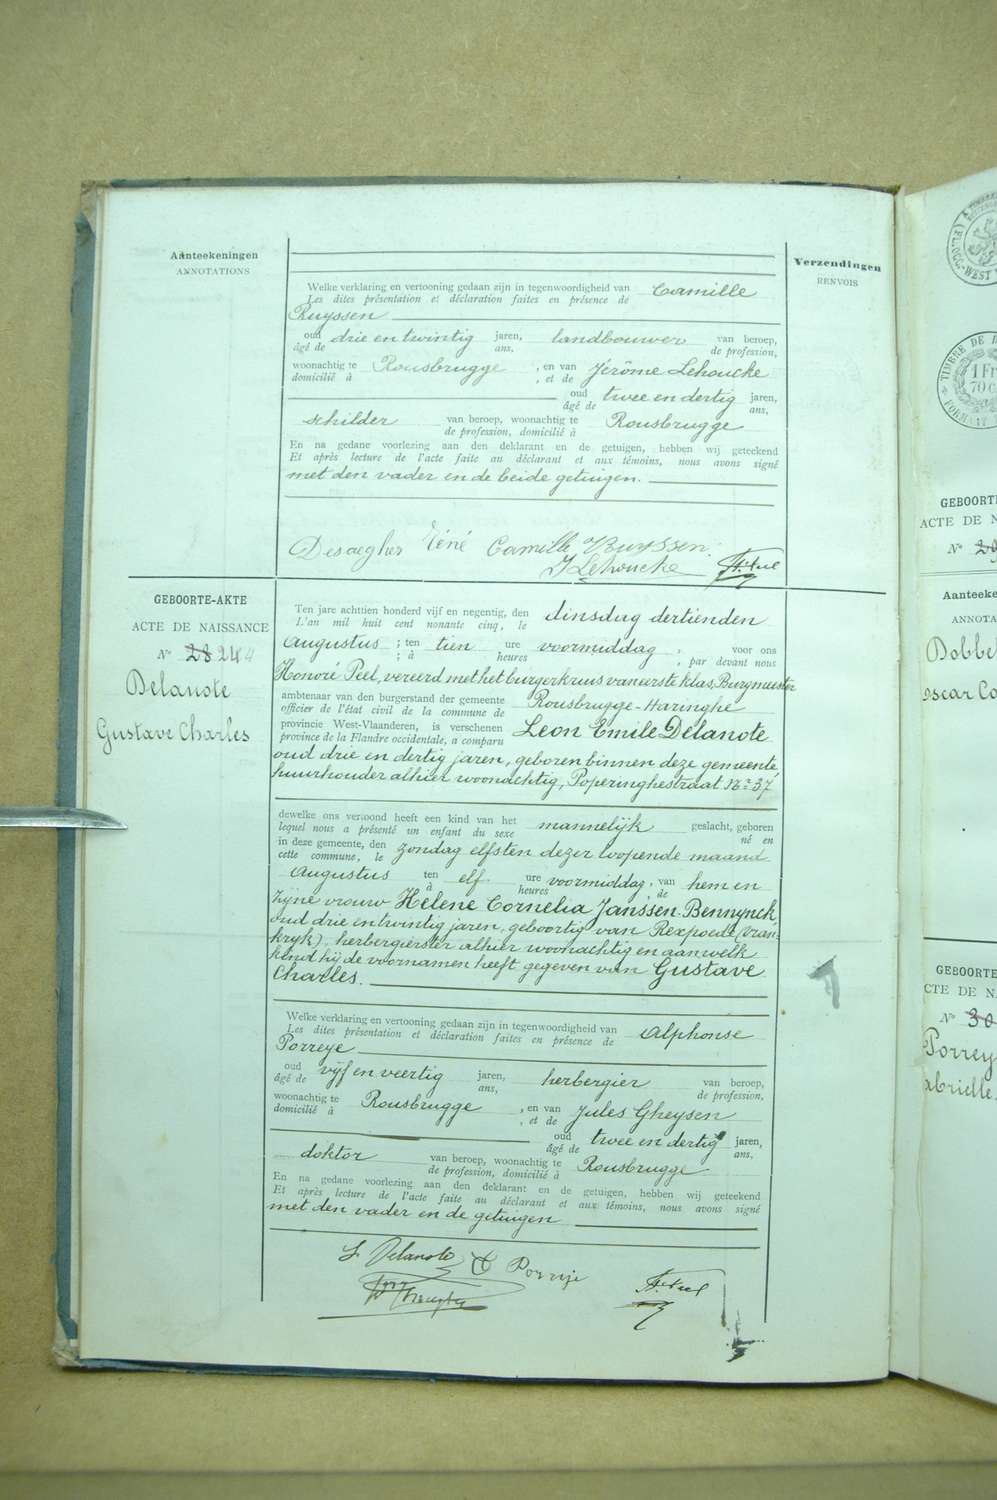 Aanteekeningen
ANNOTATIONS
Verzendingen
RENVOIS
Welke verklaring en vertooning gedaan zijn in tegenwoordigheid van Camille
Les dites présentation et déclaration faites en présence de
Ruyssen
oud drie en twintig jaren, landbouwer van beroep,
âgé de ans, de profession,
woonachtig te Rousbrugge, en van Jérôme Lehoucke
domicilié à , et de
oud twee en dertig jaren,
âgé de ans,
schilder van beroep, woonachtig te Rousbrugge
de profession, domicilié à
En na gedane voorlezing aan den deklarant en de getuigen, hebben wij geteekend
Et après lecture de l'acte faite au déclarant et aux témoins, nous avons signé
met den vader en de beide getuigen.
Desaegher Réné Camille Ruyssen.
J Lehoucke H. Peel
GEBOORTE-AKTE
ACTE DE NAISSANCE
N° 28 24
Delanote
Gustave Charles
Ten jare achttien honderd vijf en negentig, den dinsdag dertienden
L'an mil huit cent nonante cinq, le
Augustus ; ten tien ure voormiddag , voor ons
; à heures , par devant nous
Honoré Peel, vereerd met het burgerkruis van eerste klas, Burgmeester
ambtenaar van den burgerstand der gemeente Rousbrugge-Haringhe
officier de l'état civil de la commune de
provincie West-Vlaanderen, is verschenen Leon Emile Delanote
province de la Flandre occidentale, a comparu
oud drie en dertig jaren, geboren binnen deze gemeente,
huurhouder alhier woonachtig, Poperinghestraat N° 37
dewelke ons vertoond heeft een kind van het mannelijk geslacht, geboren
lequel nous a présenté un enfant du sexe né en
in deze gemeente, den zondag elfsten dezer loopende maand
cette commune, le
Augustus ten elf ure voormiddag, van hem en
à heures , de
zijne vrouw Helene Cornelia Janssen-Bennynck,
oud drie en twintig jaren, geboortig van Rexpoede (Vran-
kryk), herbergierster alhier woonachtig en aan welk
kind hij de voornamen heeft gegeven van Gustave
Charles.
Welke verklaring en vertooning gedaan zijn in tegenwoordigheid van Alphonse
Les dites présentation et déclaration faites en présence de
Porreye
oud vijf en veertig jaren, herbergier van beroep,
âgé de ans, de profession,
woonachtig te Rousbrugge, en van Jules Gheysen
domicilié à , et de
oud twee en dertig jaren,
âgé de ans,
doktor van beroep, woonachtig te Rousbrugge
de profession, domicilié à
En na gedane voorlezing aan den deklarant en de getuigen, hebben wij geteekend
Et après lecture de l'acte faite au déclarant et aux témoins, nous avons signé
met den vader en de getuigen
L. Delanote Porreije
H. Peel
TIMBRE DE
1 Fr
70 c
FORMAT
GEBOORT
ACTE DE N
N°
Aanteeke
ANNOTA
Dobbe
oscar Co
GEBOORTE
CTE DE N
N° 30
Porrey
abrielle